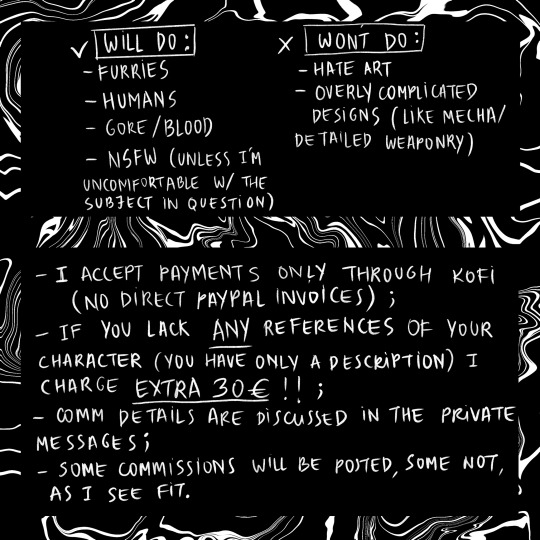 ✓ WILL DO:
- FURRIES
- HUMANS
- GORE/BLOOD
- NSFW (UNLESS I'M
UNCOMFORTABLE W/ THE
SUBJECT IN QUESTION)
X WONT DO:
- HATE ART
- OVERLY COMPLICATED
DESIGNS (LIKE MECHA/
DETAILED WEAPONRY)
- I ACCEPT PAYMENTS ONLY THROUGH KOFI
(NO DIRECT PAYPAL INVOICES);
- IF YOU LACK ANY REFERENCES OF YOUR
CHARACTER (YOU HAVE ONLY A DESCRIPTION) I
CHARGE EXTRA 30€!!;
- COMM DETAILS ARE DISCUSSED IN THE PRIVATE
MESSAGES;
- SOME COMMISSIONS WILL BE POSTED, SOME NOT,
AS I SEE FIT.